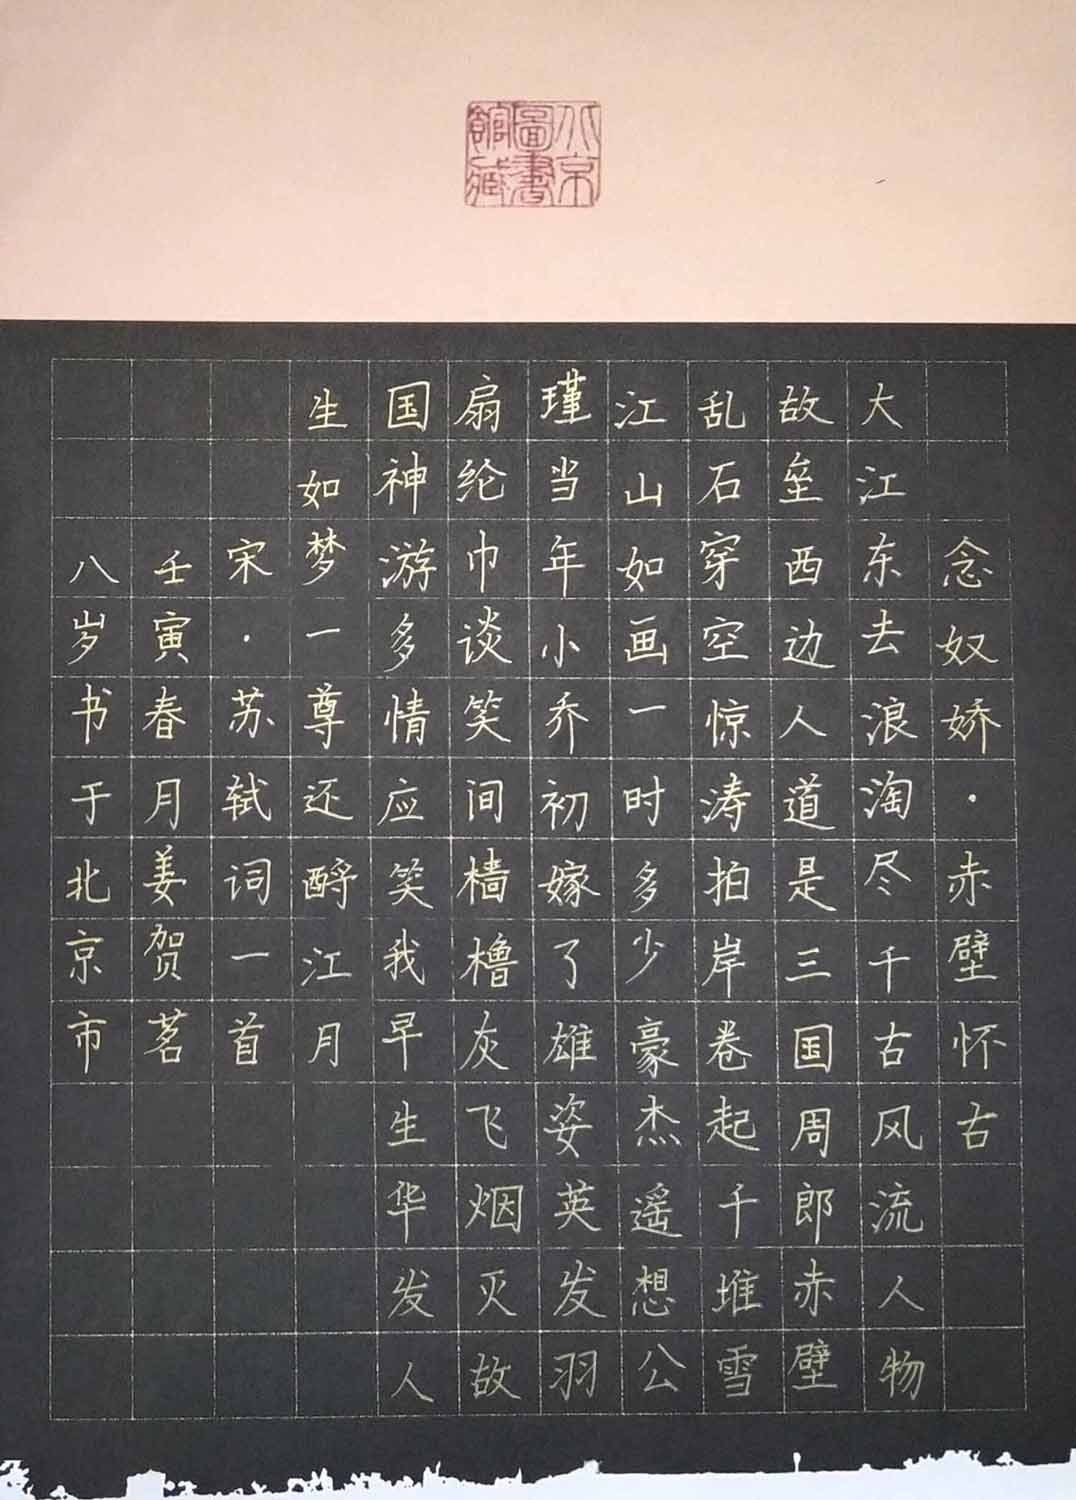 北京
圖書
館藏
念奴娇·赤壁怀古
大江东去浪淘尽千古风流人物
故垒西边人道是三国周郎赤壁
乱石穿空惊涛拍岸卷起千堆雪
江山如画一时多少豪杰遥想公
瑾当年小乔初嫁了雄姿英发羽
扇纶巾谈笑间樯橹灰飞烟灭故
国神游多情应笑我早生华发人
生如梦一尊还酹江月
宋·苏轼词一首
壬寅春月姜贺茗
八岁书于北京市